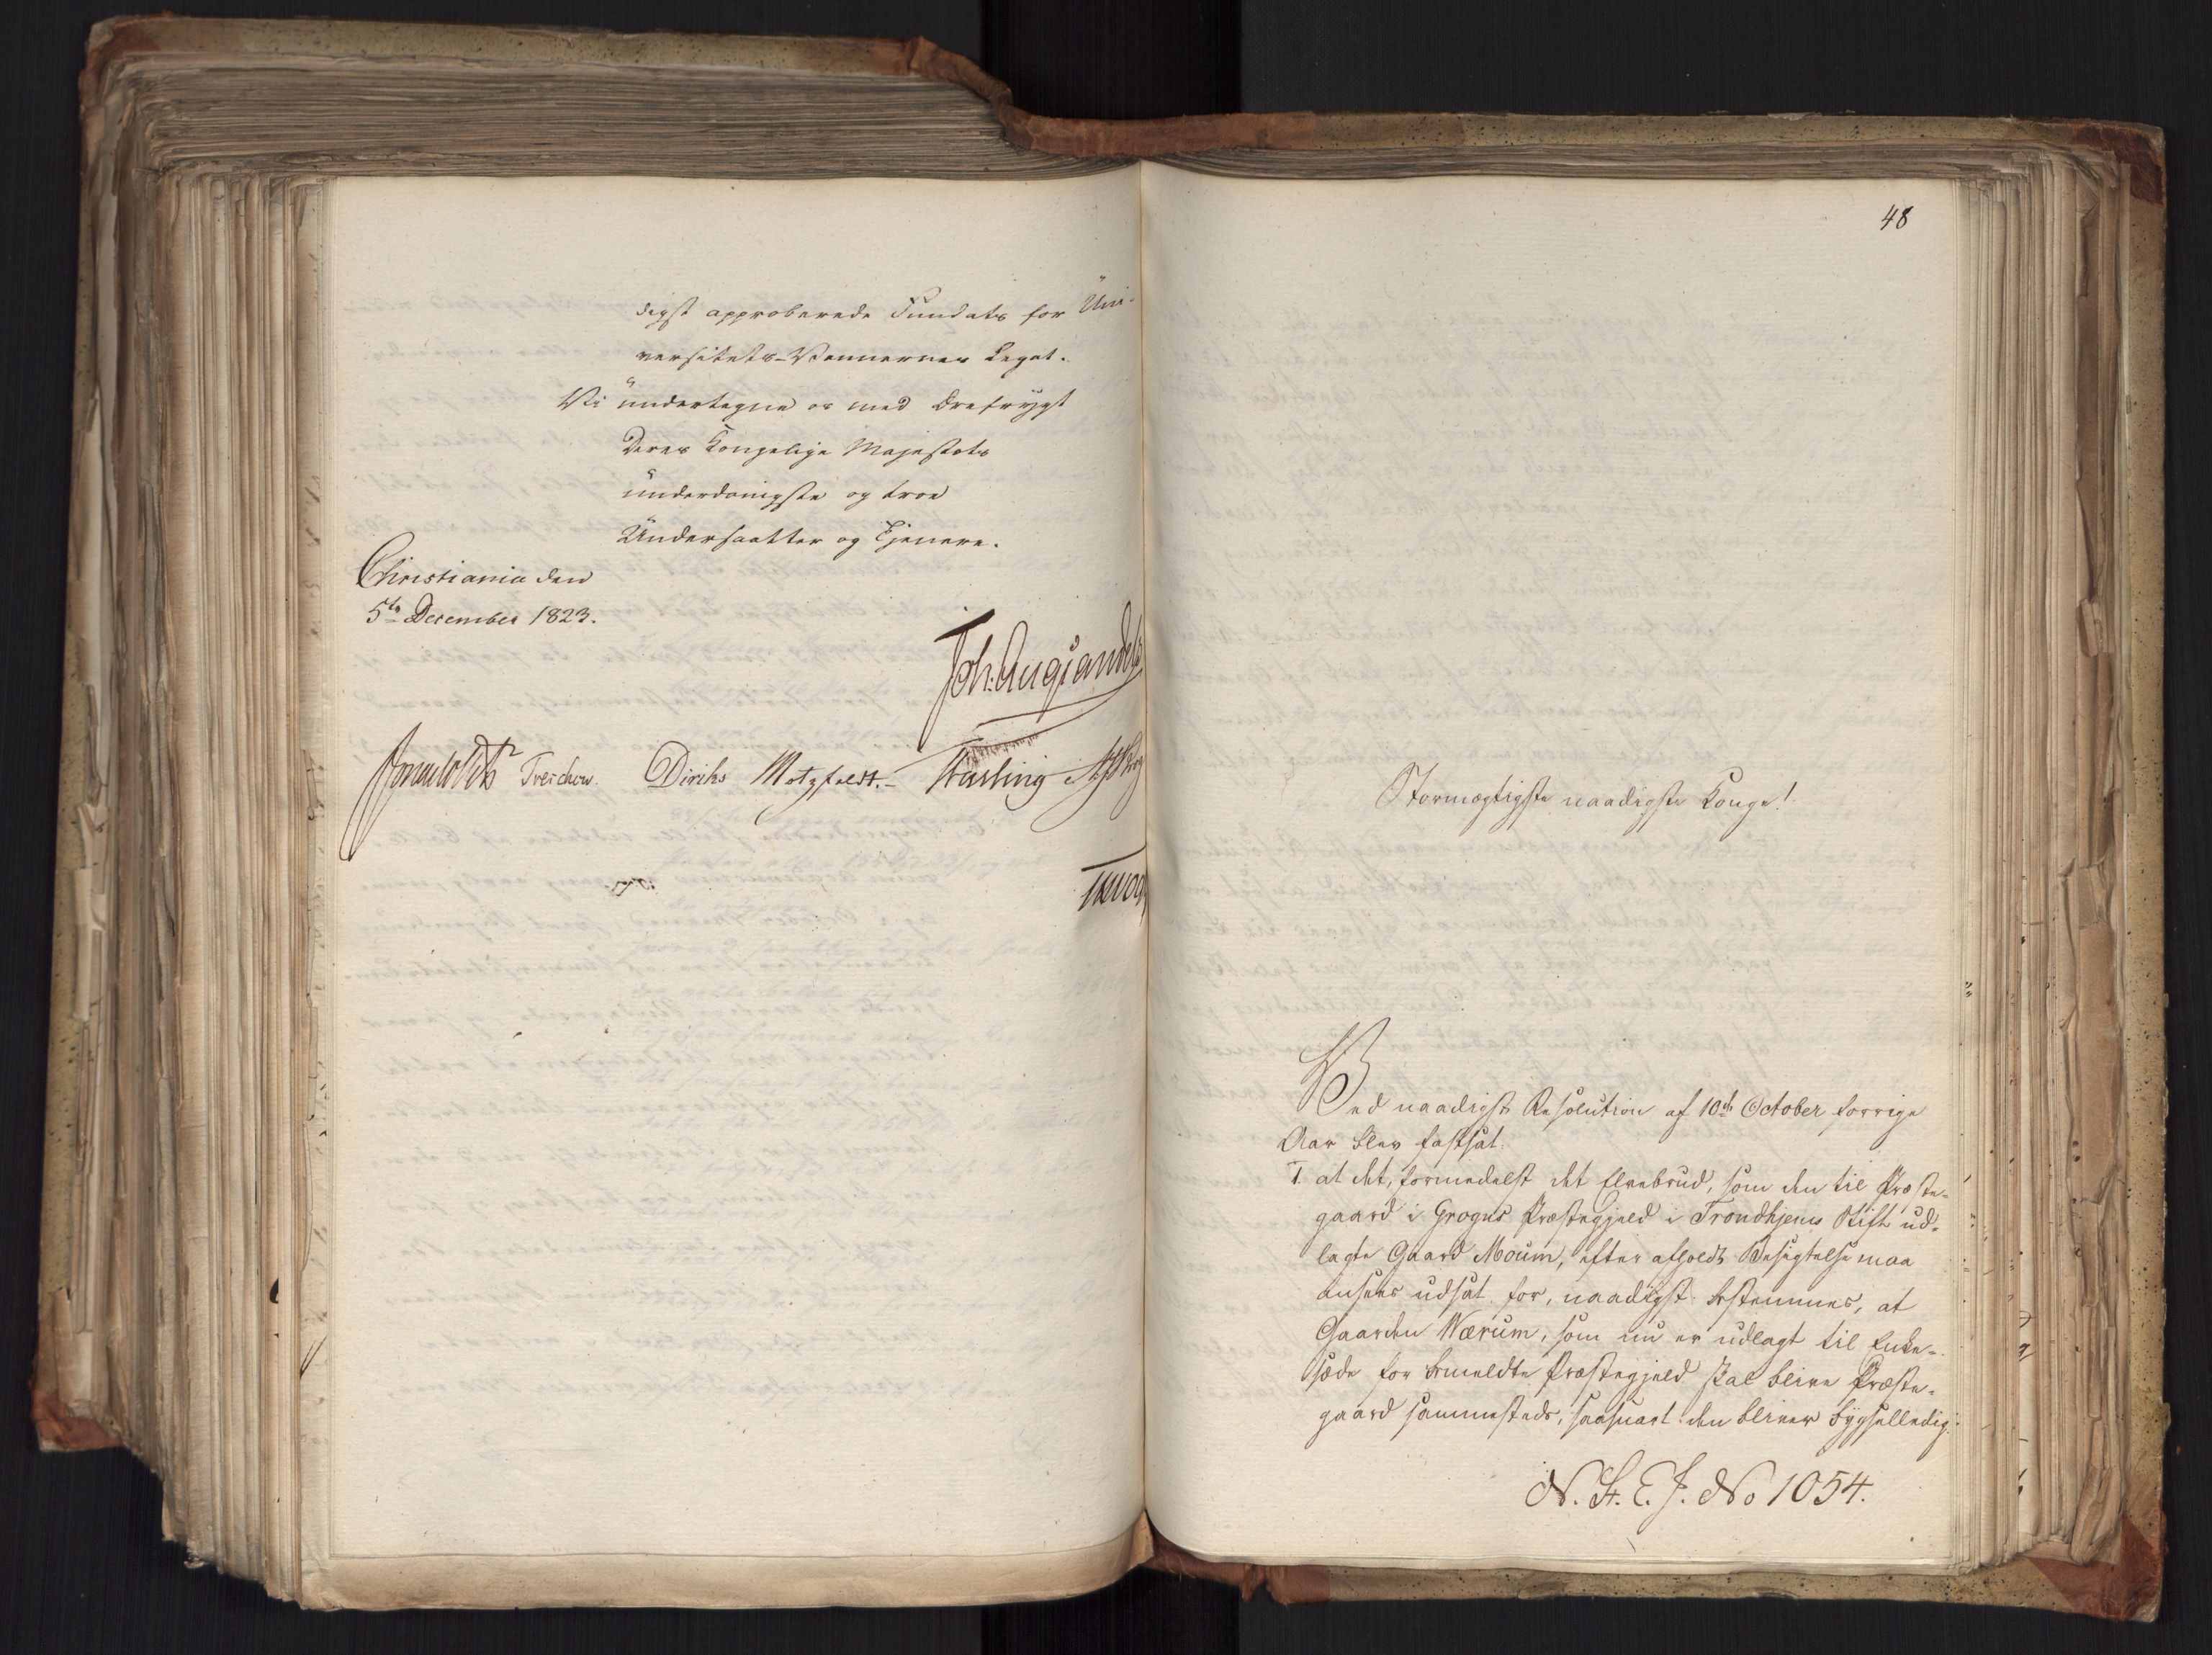 digst approberede Fundats for Uni-
versitets-Vennernes Legat.
Vi undertegne os med Ærefrygt
Deres Kongelige Majestæts
underdanigste og troe
Undersaatter og Tjenere.
Christiania den
5te December 1823.
Joh: Aug: Sandels
Sommerhielm Treschow. Diriks Motzfeldt.- Fasting Krog
48
Stormægtigste naadigste Konge!
Ved naadigst Resolution af 10de October forrige
Aar blev fastsat:
1. at det, formedelst det Elvebrud, som den til Præste-
gaard i Grogns Præstegjeld i Trondhjems Stift ud-
lagte Gaard Moum, efter afholdt Besigtelse maa
ansees udsat for, naadigst bestemmes, at
Gaarden Wærum, som nu er udlagt til Enke-
sæde for bemeldte Præstegjeld skal blive Præste-
gaard sammesteds, saasnart den bliver bygselledig.
N. St. E. J. No 1054.